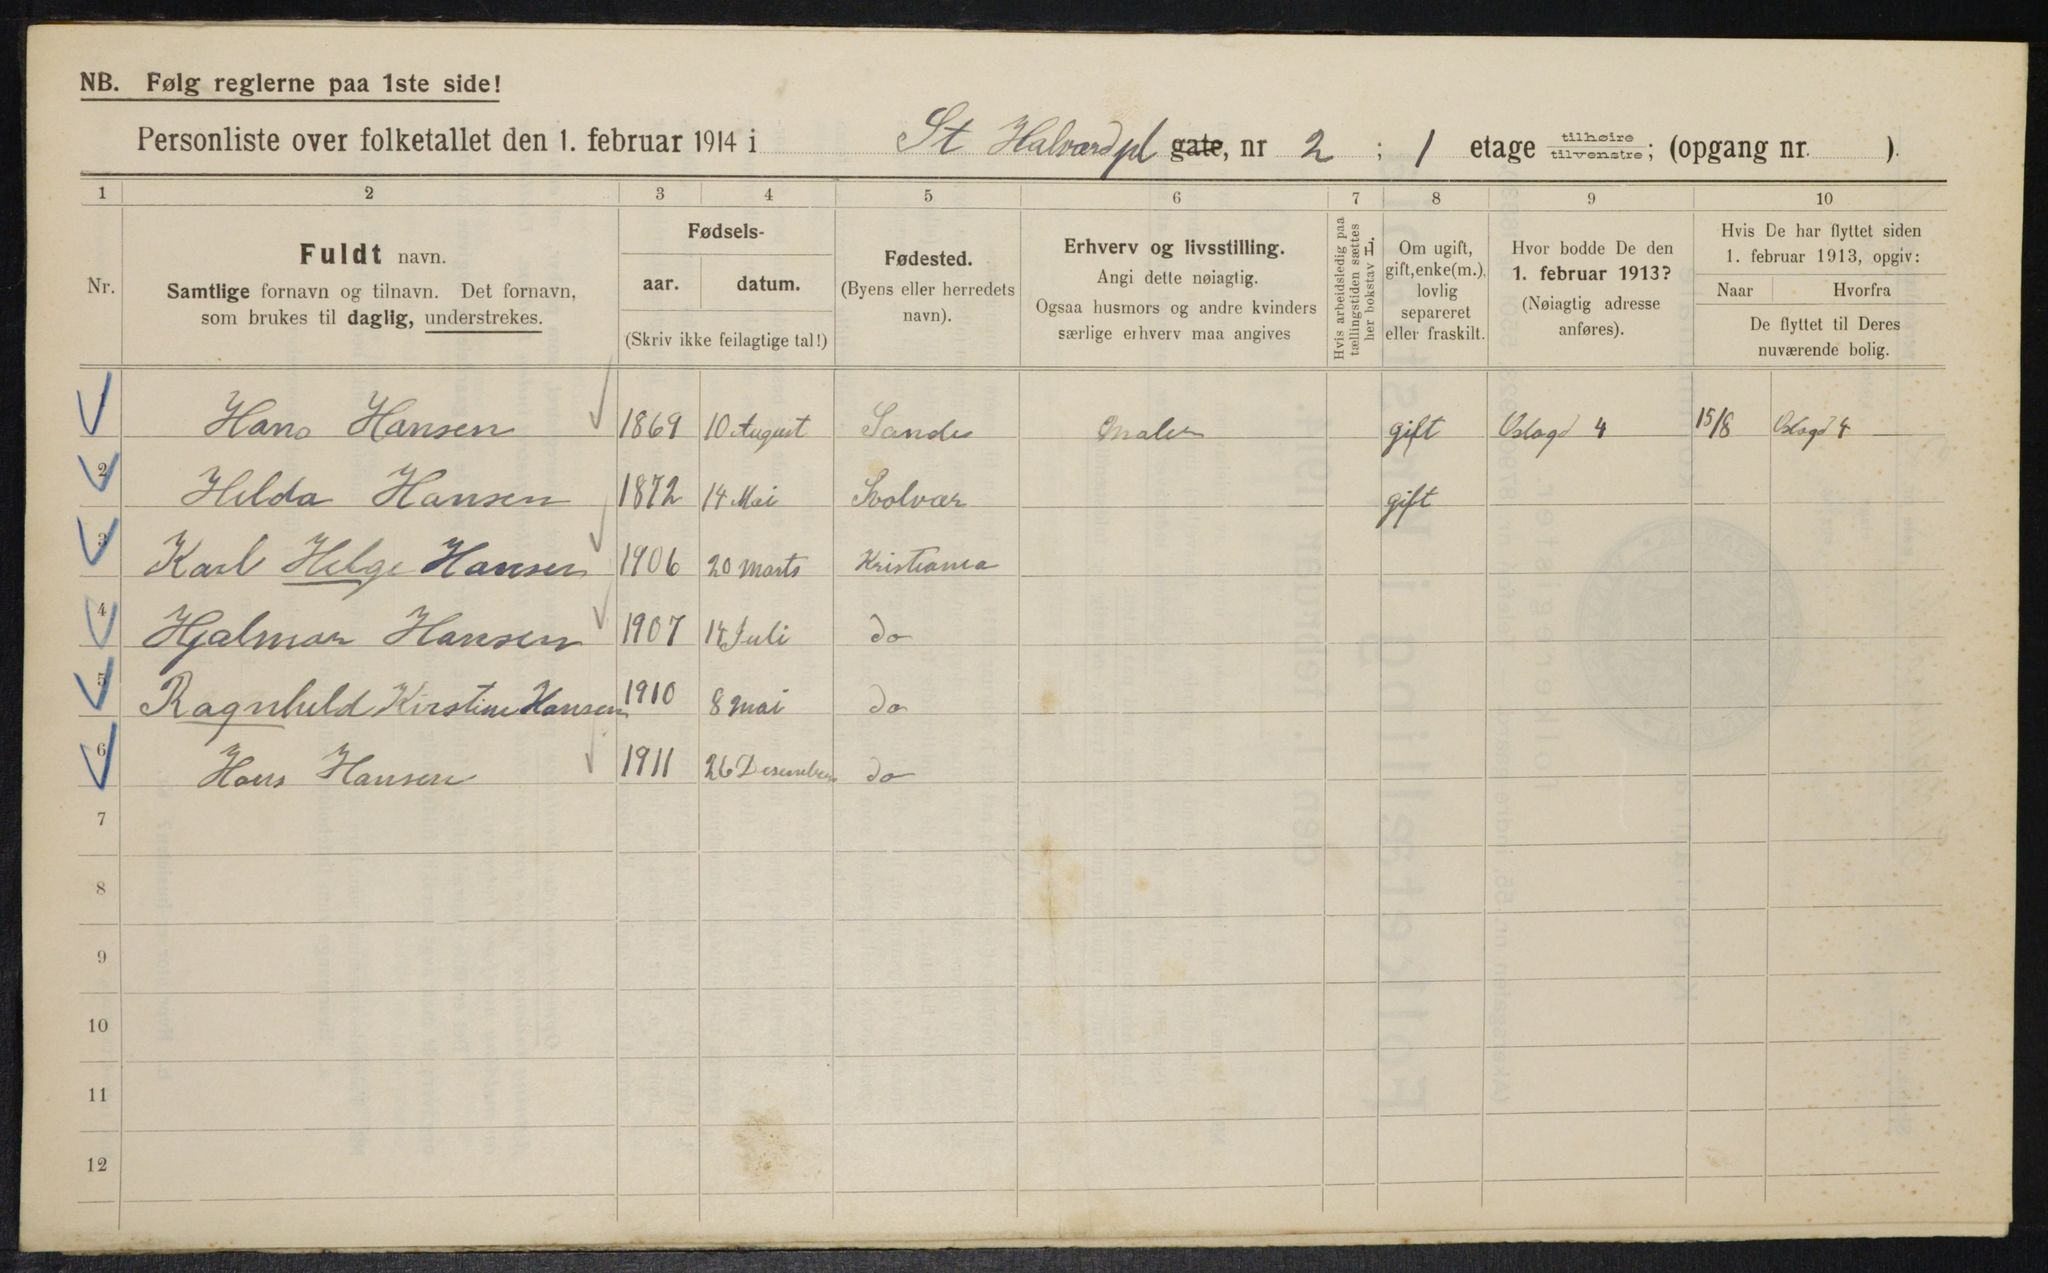 NB. Følg reglerne paa 1ste side!
Personliste over folketallet den 1. februar 1914 i St Halvardpl gate, nr 2 ; 1 etage tilhøire tilvenstre; (opgang nr. ).
1 2 3 4 5 6 7 8 9 10
Nr.
Fuldt navn.
Samtlige fornavn og tilnavn. Det fornavn,
som brukes til daglig, understrekes.
Fødsels-
aar. datum.
(Skriv ikke feilagtige tal!)
Fødested.
(Byens eller herredets
navn).
Erhverv og livsstilling.
Angi dette nøiagtig.
Ogsaa husmors og andre kvinders
særlige erhverv maa angives
Hvis arbeidsledig paa
tællingstiden sættes
her bokstav L.
Om ugift,
gift, enke(m.),
lovlig
separeret
eller fraskilt.
Hvor bodde De den
1. februar 1913?
(Nøiagtig adresse
anføres).
Hvis De har flyttet siden
1. februar 1913, opgiv:
Naar Hvorfra
De flyttet til Deres
nuværende bolig.
Hans Hansen 1869 10 August Sandes Maler gift Oslogd 4 15/8 Oslogd 4
2 Hilda Hansen 1872 14 Mai Svolvær gift
3 Karl Helge Hansen 1906 20 Marts Kristiania
4 Hjalmar Hansen 1907 14 Juli do
5 Ragnhild Kirstine Hansen 1910 8 Mai do
6 Hans Hansen 1911 26 Desember do
7
8
9
10
11
12